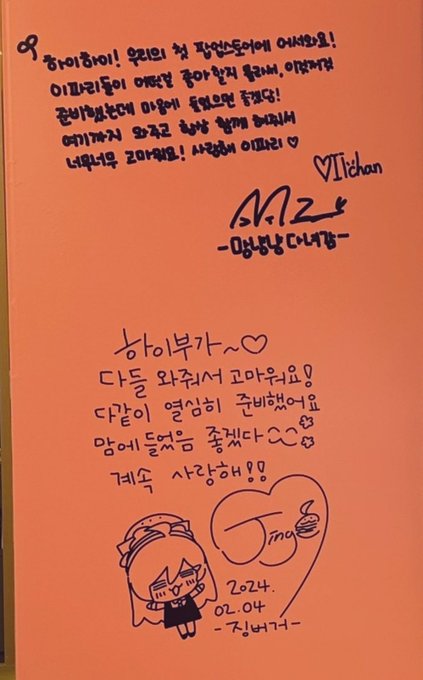 하이하이! 우리의 첫 팝업스토어에 어서와요!
이파리들이 어떤걸 좋아할지 몰라서, 이것저것
준비했는데 마음에 들었으면 좋겠당!
여기까지 와주고 항상 함께 해줘서
너무너무 고마워요! 사랑해 이파리♡
♡Ilichan
-망냥냥 다녀감-
하이부가~♡
다들 와줘서 고마워요!
다같이 열심히 준비했어요
맘에들었음 좋겠다^^
계속 사랑해!!
Jing
2024.
02.04
-징버거-